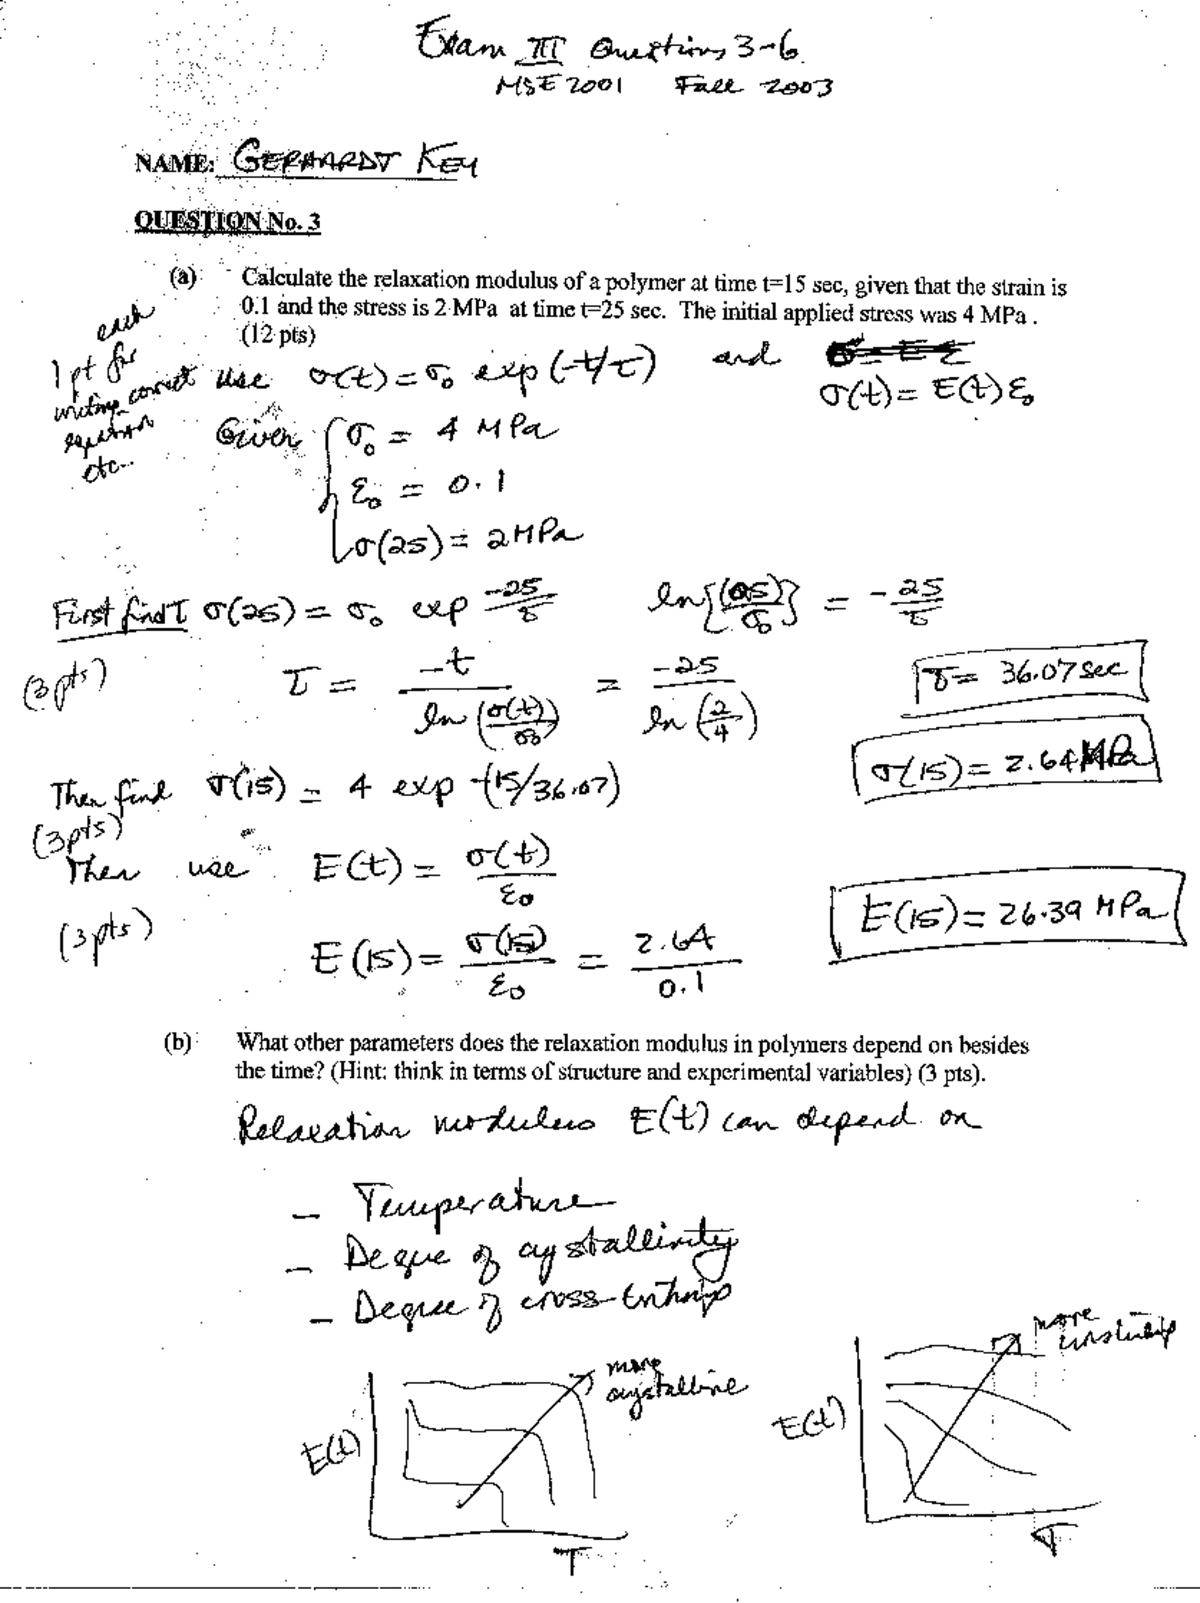 Exam III Questions 3-6
MSE 2001 Fall 2003
NAME: GERHARDT KEY
QUESTION No. 3
(a) Calculate the relaxation modulus of a polymer at time t=15 sec, given that the strain is
0.1 and the stress is 2 MPa at time t=25 sec. The initial applied stress was 4 MPa.
(12 pts)
each
1 pt for
writing correct
equation
etc..
Use σ(t) = σ₀ exp(-t/τ) and
σ(t) = E(t) ε₀
Given { σ₀ = 4 MPa
ε₀ = 0.1
σ(25) = 2 MPa
First find τ σ(25) = σ₀ exp -25/τ ln{(25)/σ₀} = -25/τ
(3 pts) τ = -t / ln(σ(t)/σ₀) = -25 / ln(2/4) τ = 36.07 sec
Then find σ(15) = 4 exp -(15/36.07) σ(15) = 2.64 MPa
(3 pts)
Then use E(t) = σ(t)/ε₀
(3 pts) E(15) = σ(15)/ε₀ = 2.64/0.1 E(15) = 26.39 MPa
(b) What other parameters does the relaxation modulus in polymers depend on besides
the time? (Hint: think in terms of structure and experimental variables) (3 pts).
Relaxation modulus E(t) can depend on
- Temperature
- Degree of crystallinity
- Degree of cross-linking
more
crystalline
E(t)
T
more
crosslinking
E(t)
T